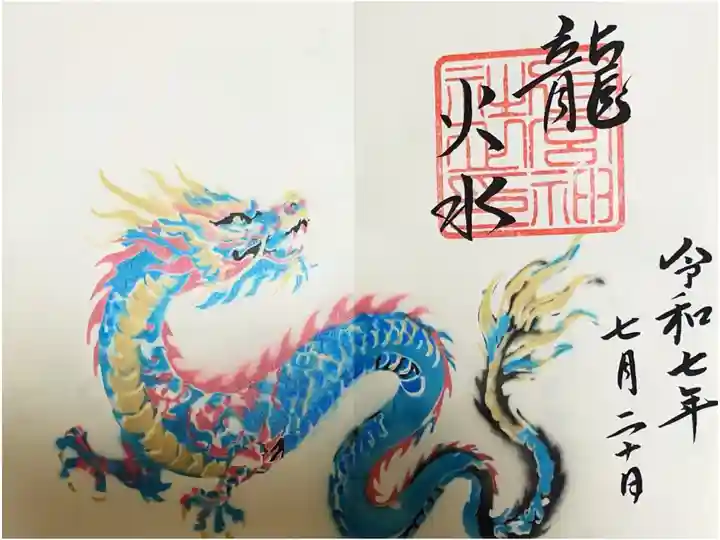 令和七年
七月二十日
龍
火水